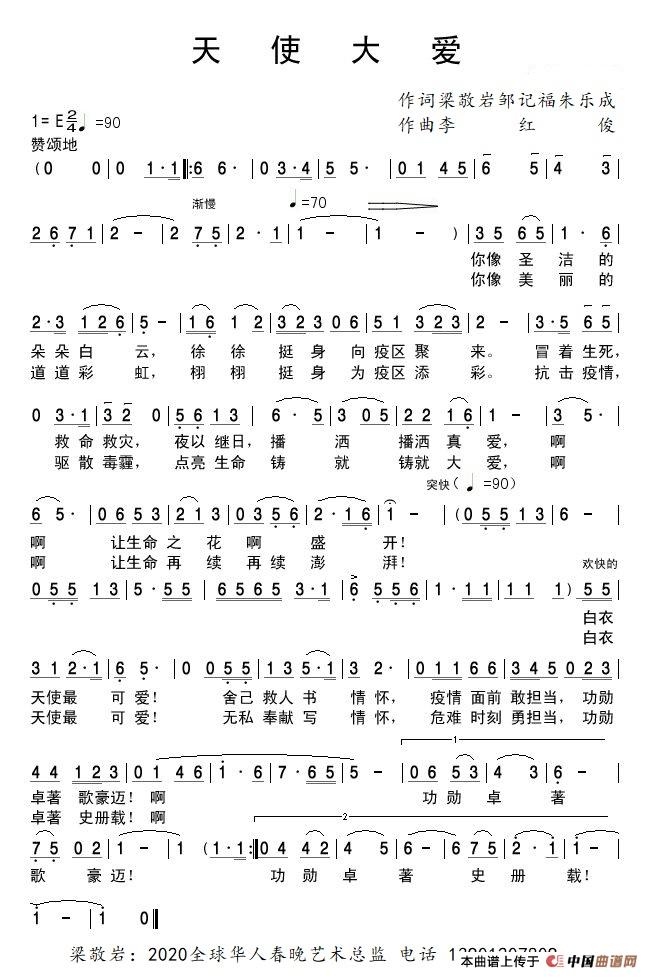 天 使 大 爱
作词梁敬岩邹记福朱乐成
作曲李 红 俊
1=E 2/4 ♩=90
赞颂地
(0 0 | 0 1·1 |: 6 6· | 0 3·4 | 5 5· | 0 1 4 5 | 6 5 | 4 3 |
渐慢 ♩=70
2 6 7 1 | 2 - | 2 7 5 | 2· 1 | 1 - | 1 - ) | 3 5 6 5 | 1· 6 |
你像 圣 洁 的
你像 美 丽 的
2·3 1 2 6 | 5 - | 1 6 1 2 | 3 2 3 0 6 | 5 1 3 2 3 | 2 - | 3·5 6 5 |
朵 朵 白 云, 徐 徐 挺 身 向 疫区 聚 来。 冒 着 生死,
道 道 彩 虹, 栩 栩 挺 身 为 疫区 添 彩。 抗 击 疫情,
0 3·1 | 3 2 0 | 5 6 1 3 | 6· 5 | 3 0 5 | 2 2 1 6 | 1 - | 3 5· |
救 命 救灾, 夜以 继日, 播 洒 播洒 真 爱, 啊
驱 散 毒霾, 点亮 生命 铸 就 铸就 大 爱, 啊
突快( ♩=90)
6 5· | 0 6 5 3 | 2 1 3 | 0 3 0 8 | 5 6·5 | 2· 1 6 | 1 - | (0 5 5 1 3 | 6 5 |
啊 让生命 之 花 啊 盛 开!
啊 让生命 再 续 再 续 澎 湃!
欢快的
0 5 5 1 3 | 2 5 5 5 | 6 5 6 5 3 1 | 6 5 5 5 6 | 1· 1 1 | 1 1 1 ) 5 5 |
白衣
白衣
3 1 2·1 | 6 5· | 0 0 5 5 | 1 3 5·1 | 3 2· | 0 1 1 6 6 | 3 4 5 0 2 3 |
天使最 可 爱! 舍己 救人 书 情 怀, 疫情 面前 敢担当, 功勋
天使最 可 爱! 无私 奉献 写 情 怀, 危难 时刻 勇担当, 功勋
1
4 4 1 2 3 | 0 1 4 6 | 1· 6 | 7·6 6 5 | 0 6 5 3 | 4 3 | 6 - |
卓著 歌豪迈! 啊 功 勋 卓 著
卓著 史册载! 啊
2
7 5 0 2 | 1 - | 1 (1·1 :| 0 4 4 2 | 3 4 4 5 | 6 - | 6 7 5 | 2 - | 1 - |
歌 豪 迈! 功 勋 卓 著 史 册 载!
1 - | 1 0 ‖
梁敬岩: 2020全球华人春晚艺术总监 电话
本曲谱上传于 中国曲谱网